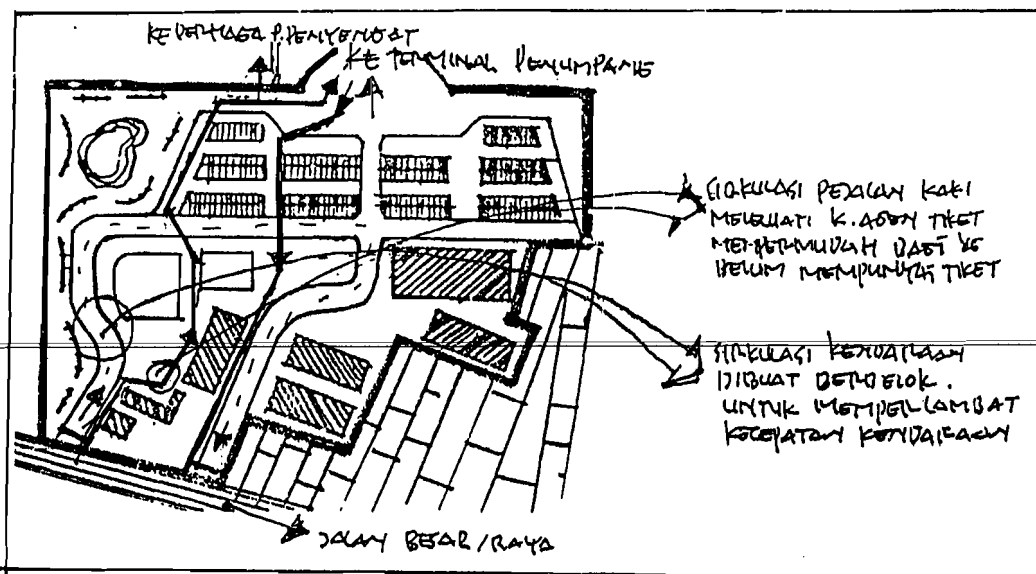 KE DERMAGA P. PENYENGAT
KE TERMINAL PENUMPANG
SIRKULASI PEJALAN KAKI
MELEWATI K. AGEN TIKET
MEMPERMUDAH BAGI YG
BELUM MEMPUNYAI TIKET
SIRKULASI KENDARAAN
DIBUAT BERBELOK.
UNTUK MEMPERLAMBAT
KECEPATAN KENDARAAN
JALAN BESAR/RAYA